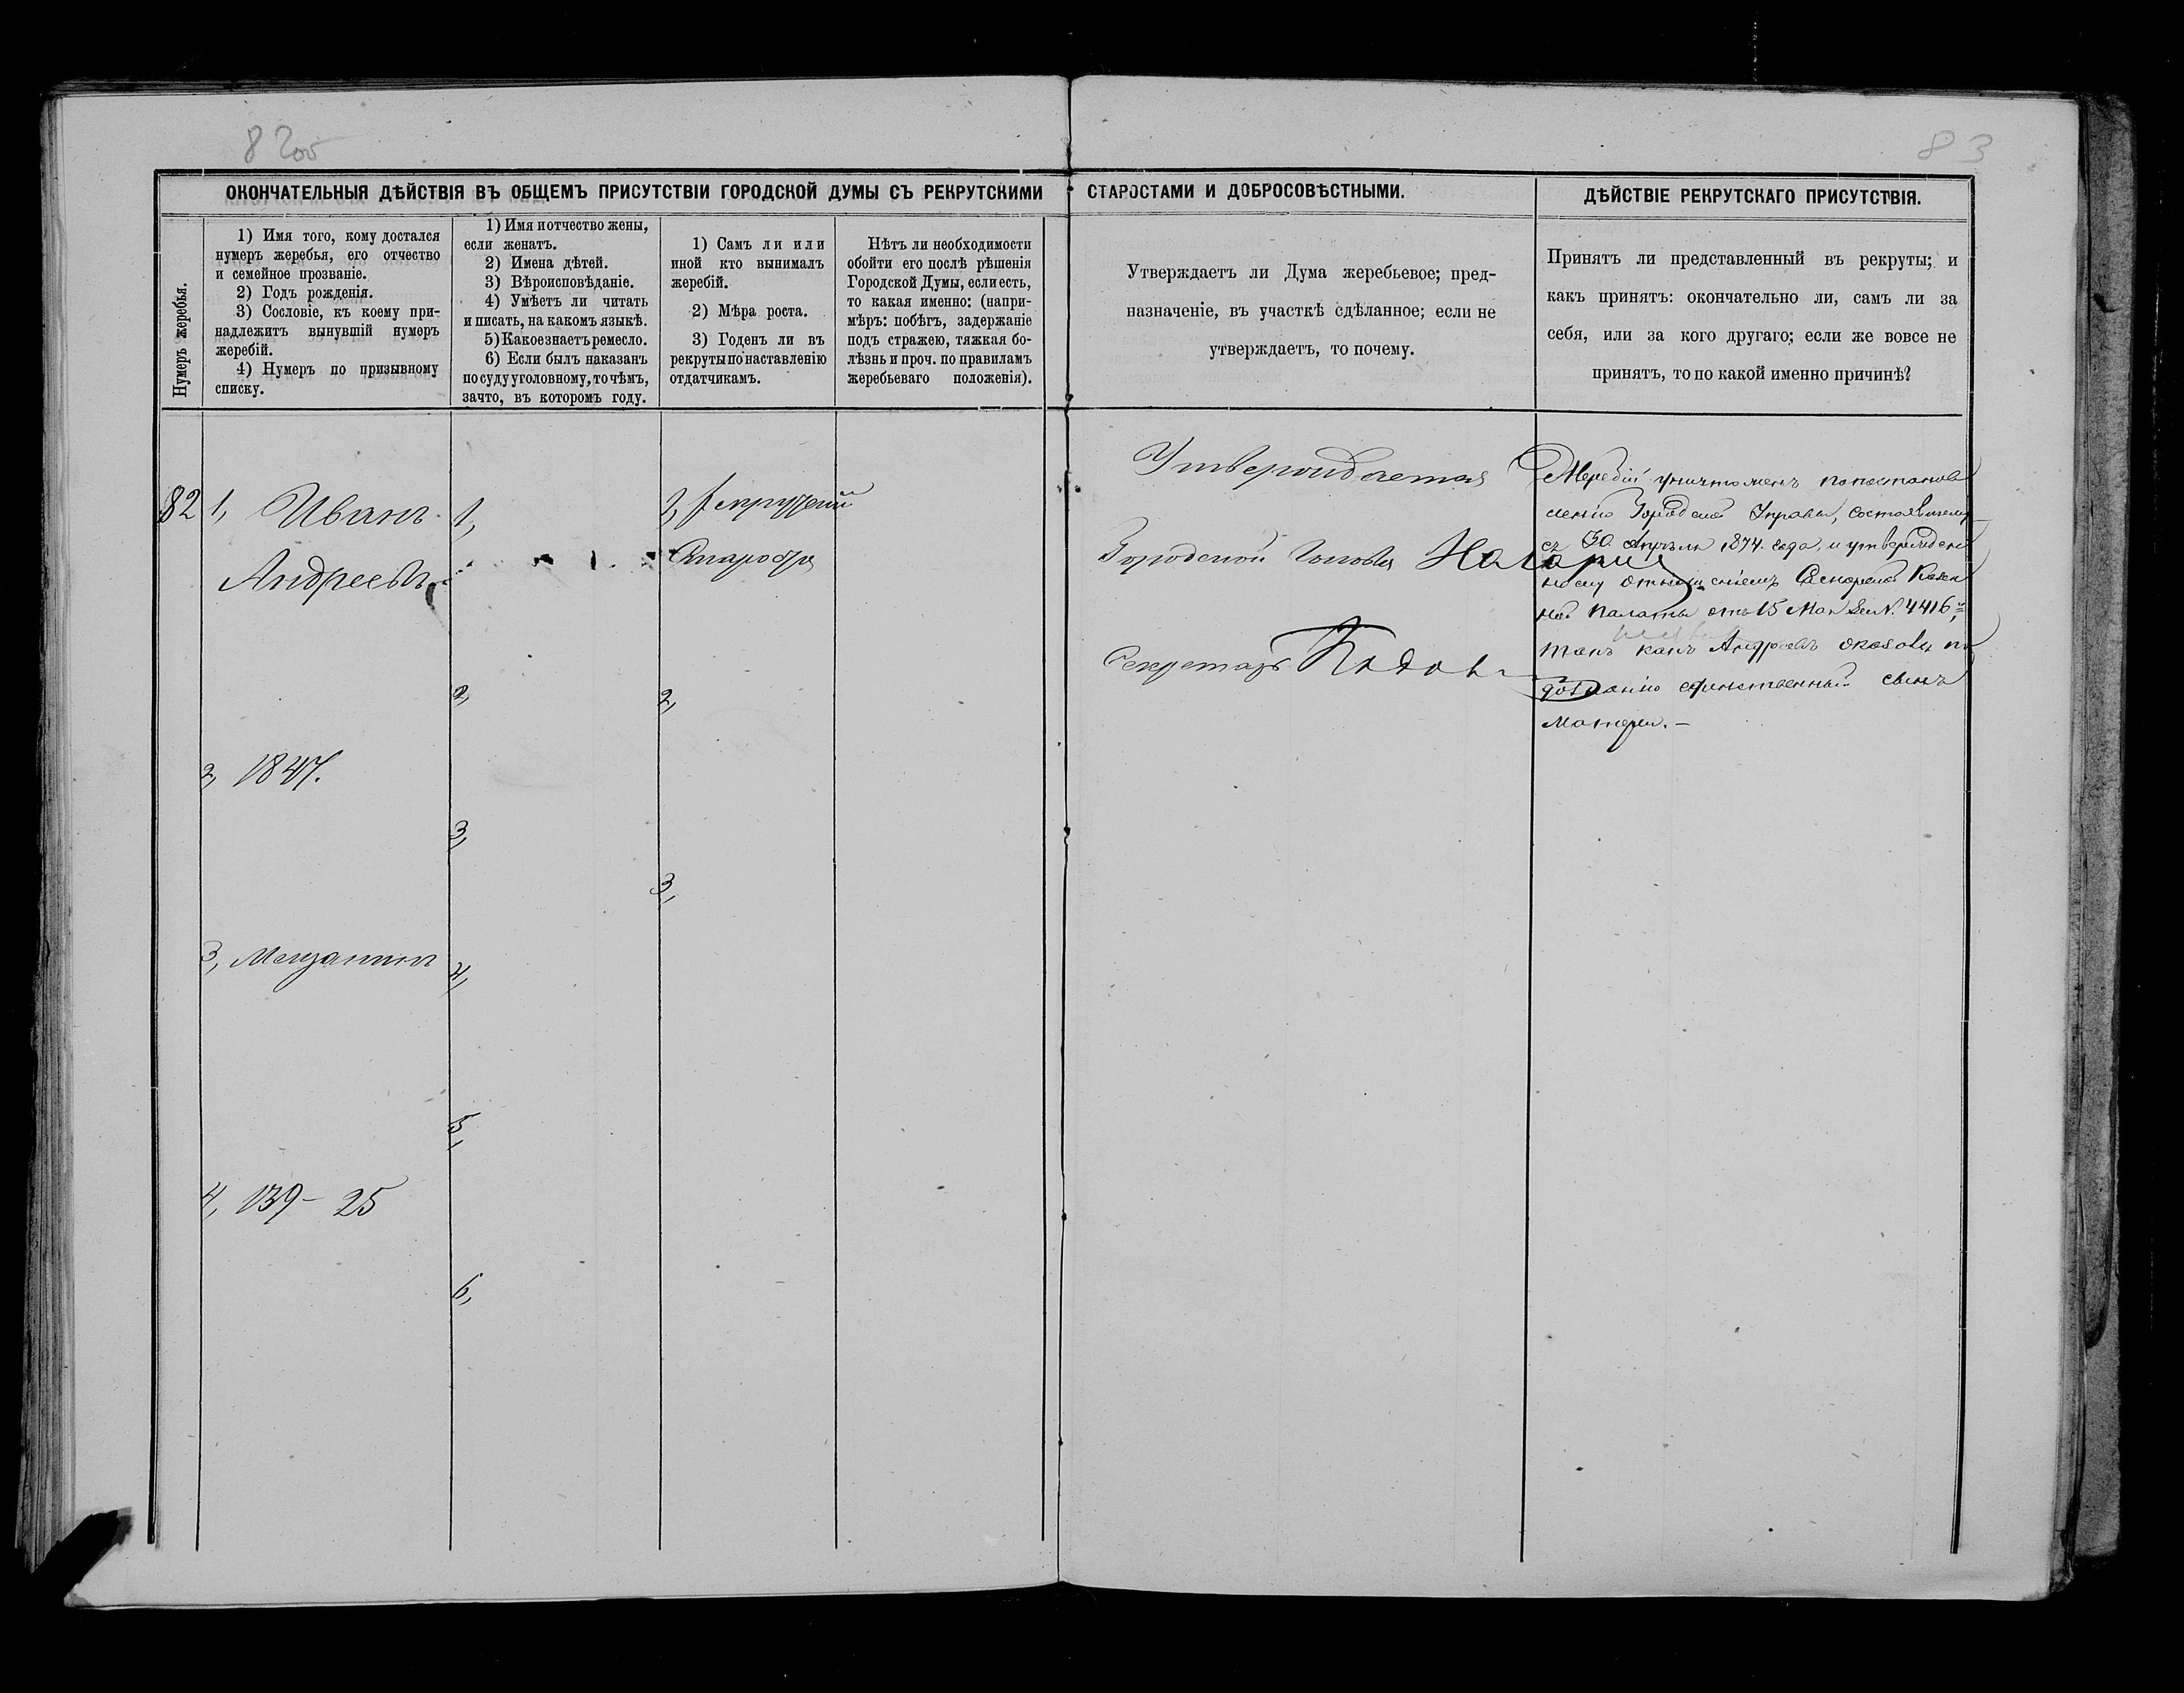 82об
83
ОКОНЧАТЕЛЬНЫЯ ДѢЙСТВІЯ ВЪ ОБЩЕМЪ ПРИСУТСТВІИ ГОРОДСКОЙ ДУМЫ СЪ РЕКРУТСКИМИ СТАРОСТАМИ И ДОБРОСОВѢСТНЫМИ.
ДѢЙСТВІЕ РЕКРУТСКАГО ПРИСУТСТВІЯ.
Нумеръ жеребья.
1) Имя того, кому достался
нумеръ жеребья, его отчество
и семейное прозваніе.
2) Годъ рожденія.
3) Сословіе, къ коему при-
надлежитъ вынувшій нумеръ
жеребій.
4) Нумеръ по призывному
списку.
1) Имя и отчество жены,
если женатъ.
2) Имена дѣтей.
3) Вѣроисповѣданіе.
4) Умѣетъ ли читать
и писать, на какомъ языкѣ.
5) Какое знаетъ ремесло.
6) Если былъ наказанъ
по суду уголовному, то чѣмъ,
зачто, въ которомъ году.
1) Самъ ли или
иной кто вынималъ
жеребій.
2) Мѣра роста.
3) Годенъ ли въ
рекруты по наставленію
отдатчикамъ.
Нѣтъ ли необходимости
обойти его послѣ рѣшенія
Городской Думы, если есть,
то какая именно: (напри-
мѣръ: побѣгъ, задержаніе
подъ стражею, тяжкая бо-
лѣзнь и проч. по правиламъ
жеребьеваго положенія).
Утверждаетъ ли Дума жеребьевое; пред-
назначеніе, въ участкѣ сдѣланное; если не
утверждаетъ, то почему.
Принятъ ли представленный въ рекруты; и
какъ принятъ: окончательно ли, самъ ли за
себя, или за кого другаго; если же вовсе не
принятъ, то по какой именно причинѣ?
82
1, Иванъ
Андреевъ
2, 1847.
3, Мещанинъ
4, 139-25
1,
2,
3,
4,
5,
6,
1, Рекрутский
Староста
2,
3,
Утверждается
Городской Голова
Секретарь
Жеребій уничтоженъ по постанов
ленію Городской Управы, состоявшему
ся 30 Апрѣля 1874 года, и утвержден
ному отношеніемъ Казен
ной Палаты отъ 15 Мая № 4416,
такъ какъ Андреевъ оказался по
дознанію единственный сынъ
матери.-